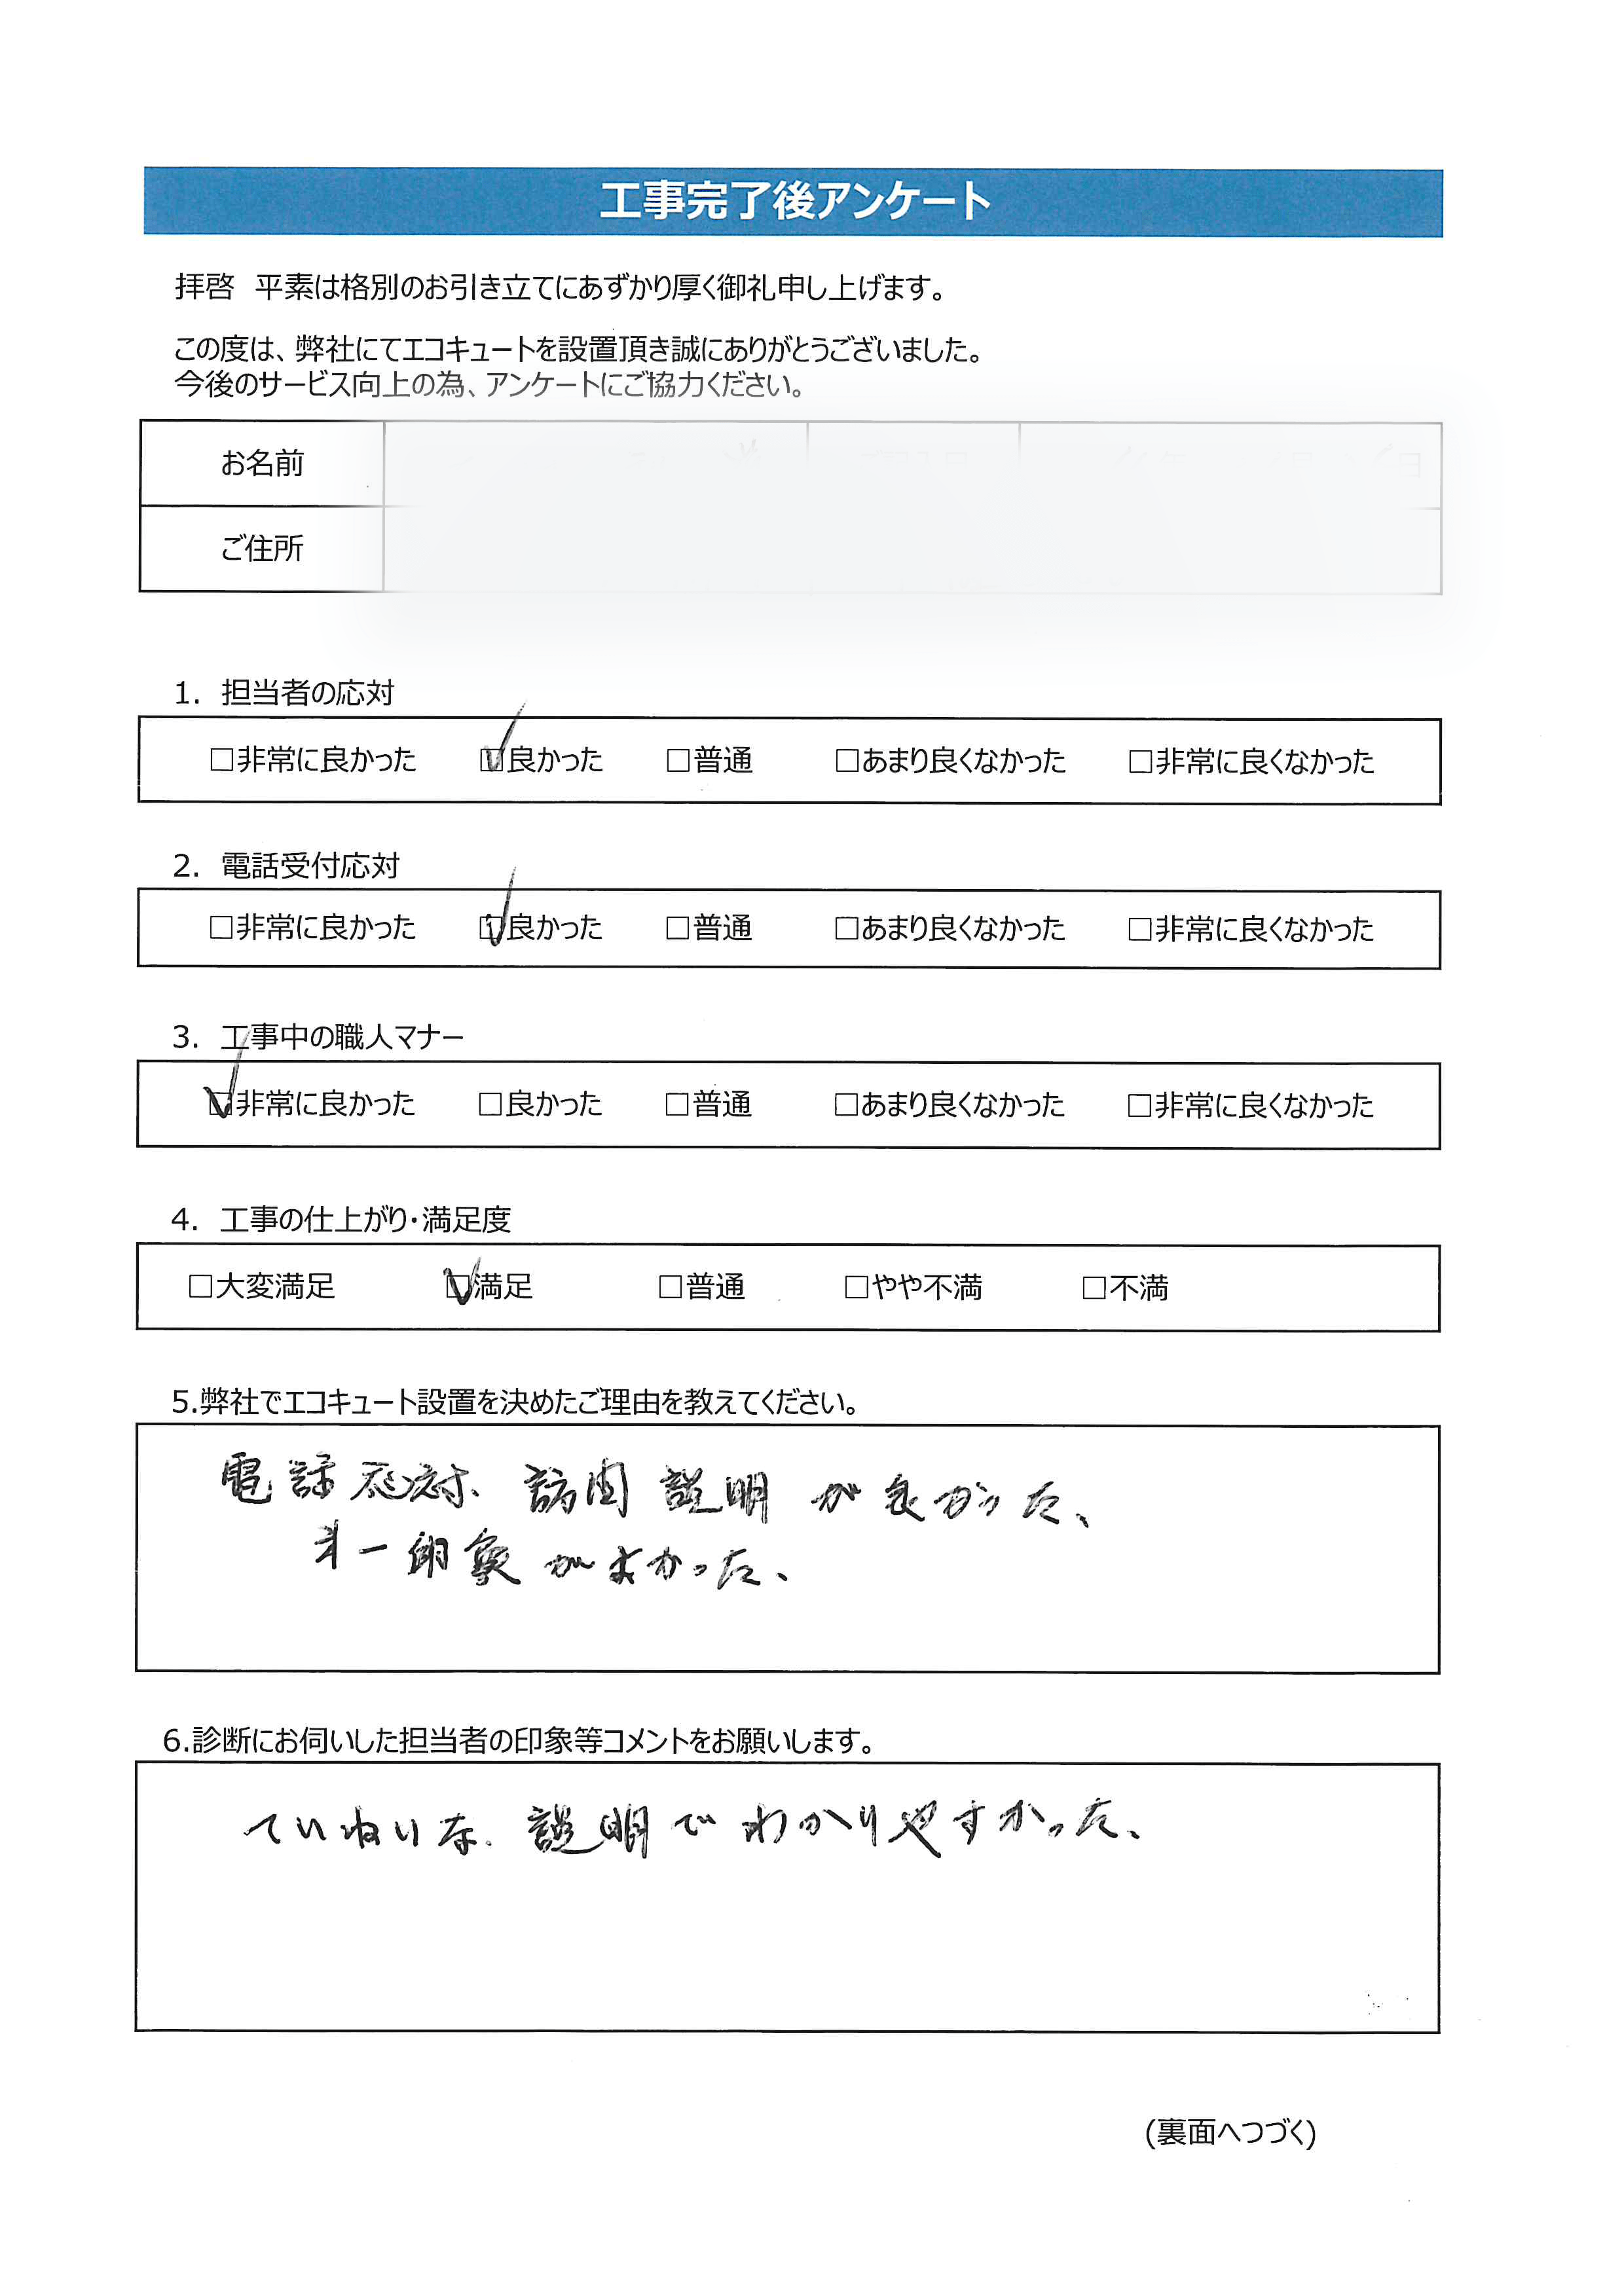 工事完了後アンケート
拝啓　平素は格別のお引き立てにあずかり厚く御礼申し上げます。
この度は、弊社にてエコキュートを設置頂き誠にありがとうございました。
今後のサービス向上の為、アンケートにご協力ください。
お名前
ご住所
1.　担当者の応対
□非常に良かった　☑良かった　□普通　□あまり良くなかった　□非常に良くなかった
2.　電話受付応対
□非常に良かった　☑良かった　□普通　□あまり良くなかった　□非常に良くなかった
3.　工事中の職人マナー
☑非常に良かった　□良かった　□普通　□あまり良くなかった　□非常に良くなかった
4.　工事の仕上がり・満足度
□大変満足　☑満足　□普通　□やや不満　□不満
5.弊社でエコキュート設置を決めたご理由を教えてください。
電話応対、訪問説明が良かった、
オ一印象がよかった、
6.診断にお伺いした担当者の印象等コメントをお願いします。
ていねいな説明でわかりやすかった、
(裏面へつづく)